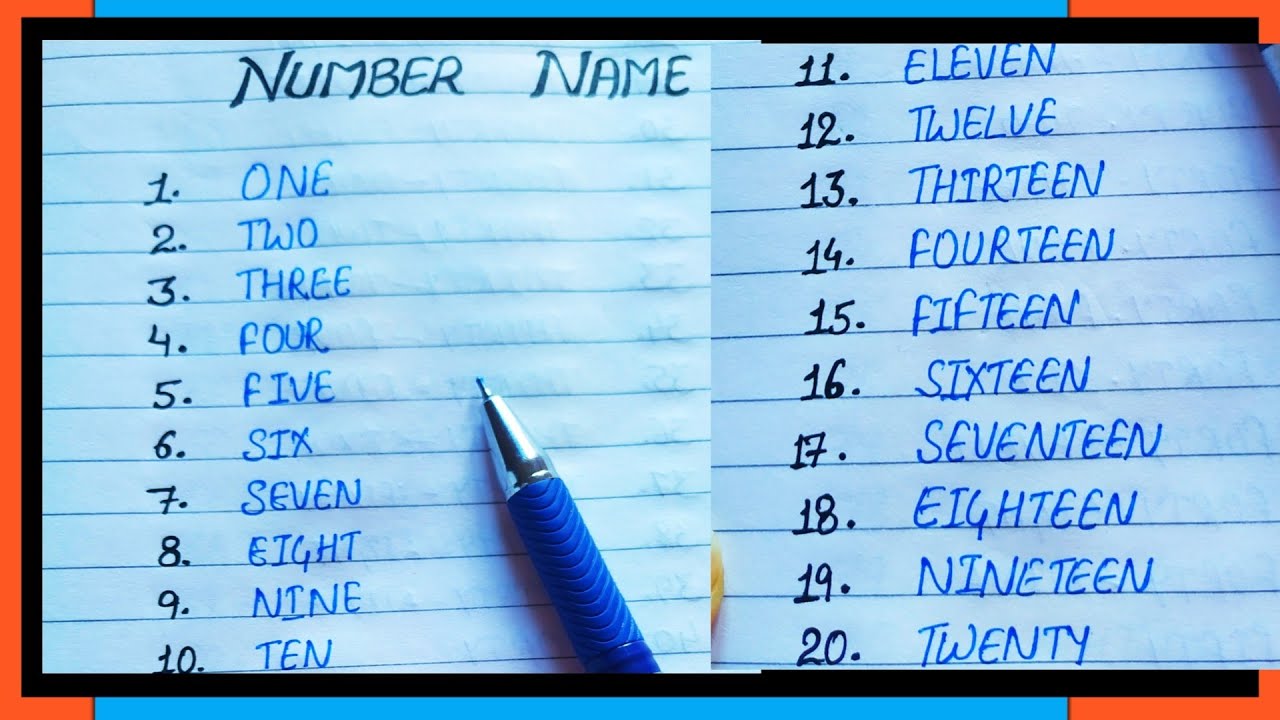 NUMBER NAME
1. ONE
2. TWO
3. THREE
4. FOUR
5. FIVE
6. SIX
7. SEVEN
8. EIGHT
9. NINE
10. TEN
11. ELEVEN
12. TWELVE
13. THIRTEEN
14. FOURTEEN
15. FIFTEEN
16. SIXTEEN
17. SEVENTEEN
18. EIGHTEEN
19. NINETEEN
20. TWENTY